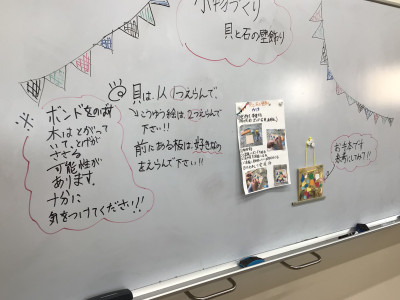 小物づくり
貝と石の壁飾り
貝は1人1つえらんで、
こつゆう絵は、2つえらんで
下さい!!
前にある板は、好きなの
まえらんで下さい!!
※
ボンドをのばす
木はとがって
いて、とげが
ささる
可能性が
あります。
十分に
気をつけてください!!
お手本です
参考にしてね!?